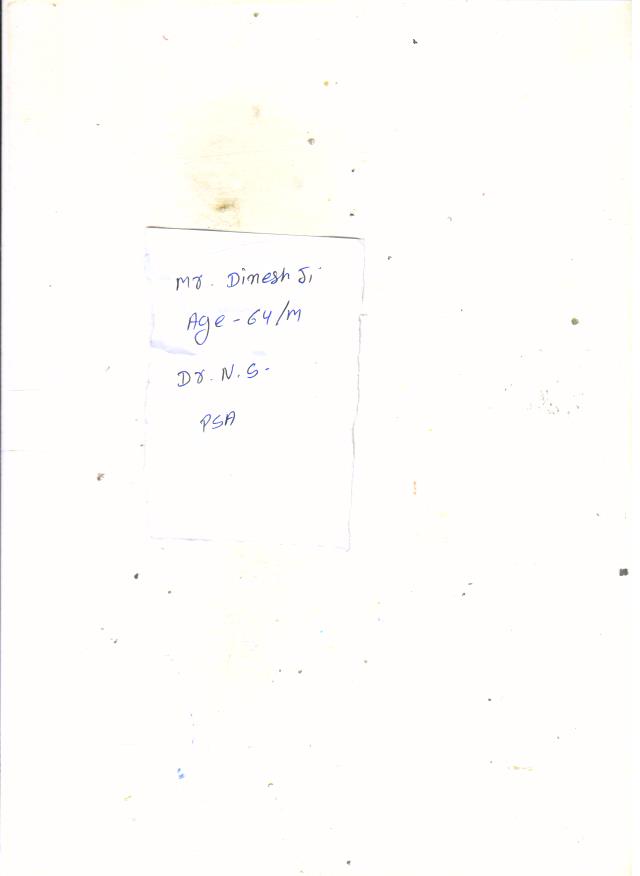 Mr. Dinesh Ji
Age - 64/M
Dr. N.S.
PSA